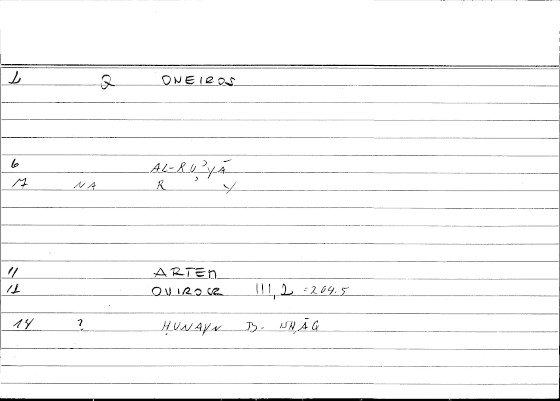 1 2 ONEIROS
6 AL-RUʾYĀ
17 NA R ʾ Y
11 ARTEM
12 ONIROCR III, 2 = 204.5
14 ? ḤUNAYN B. ISḤĀQ